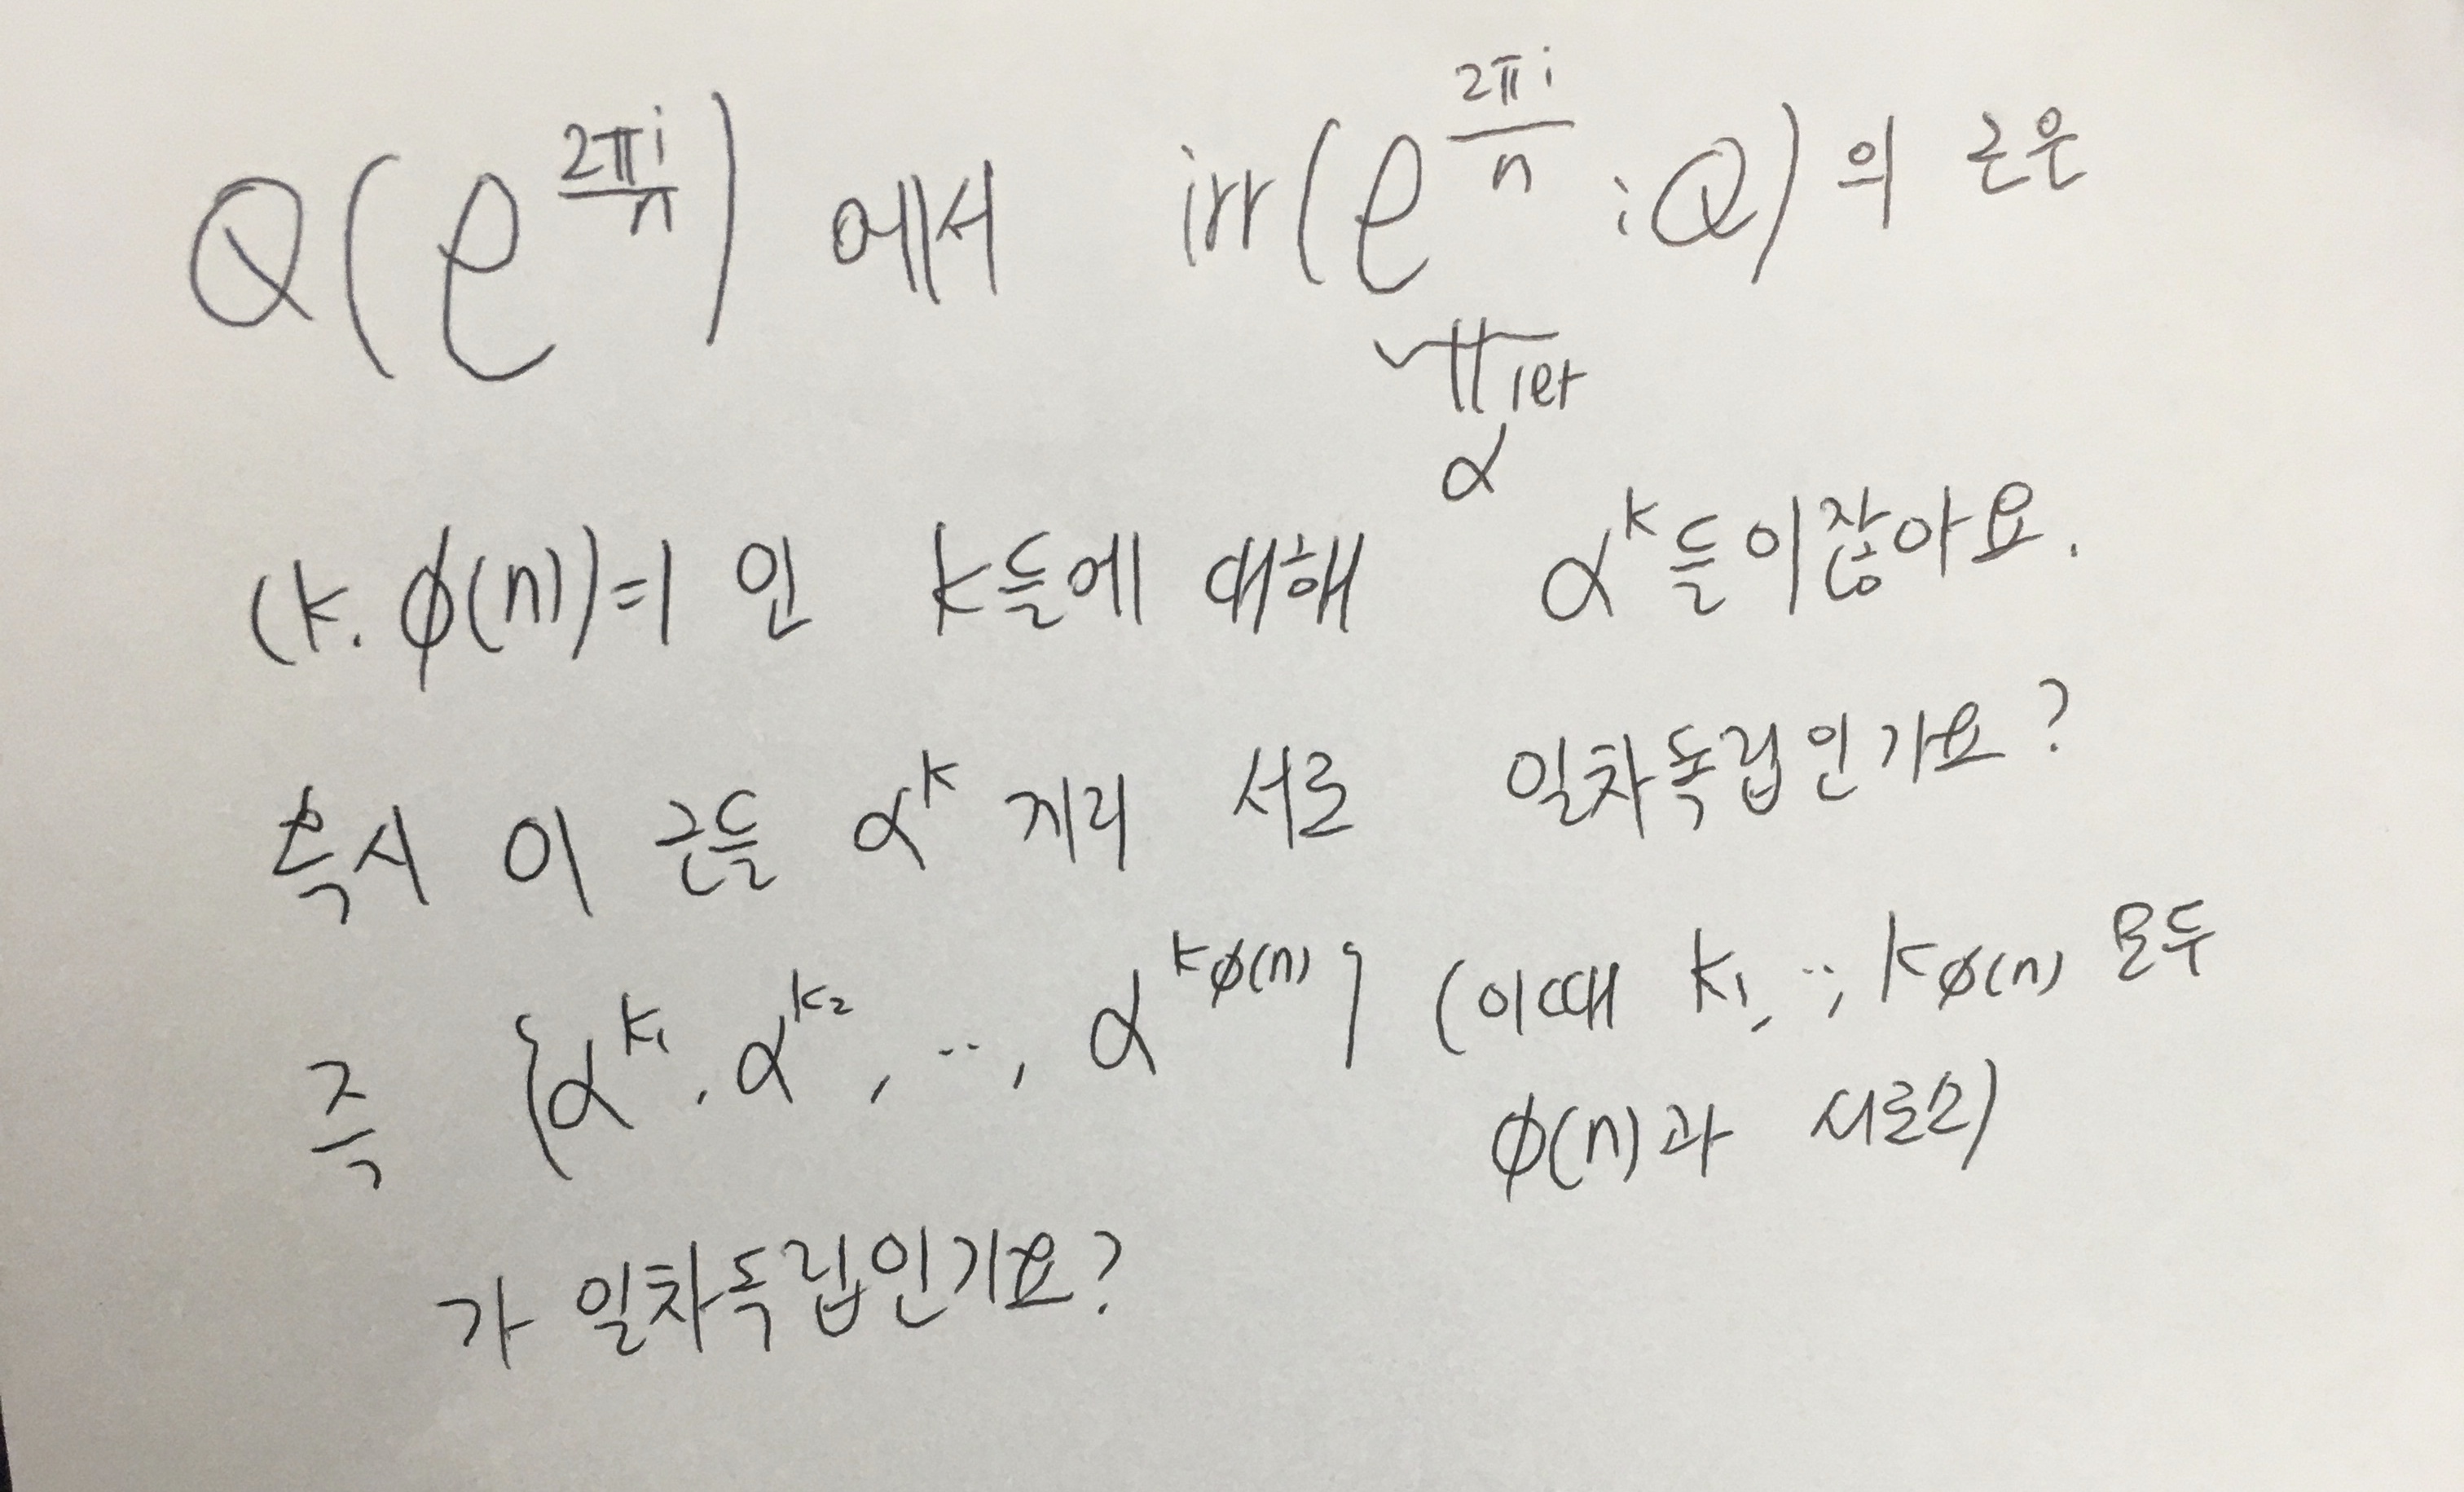 Q(e^{2πi/n}) 에서 irr(e^{2πi/n} ; Q)의 근은
α
(k. φ(n))=1 인 k들에 대해 α^k들이잖아요.
혹시 이 근들 α^k 끼리 서로 일차독립인가요?
즉 {α^{k₁}, α^{k₂}, ..., α^{k_{φ(n)}}} (이때 k₁, .., k_{φ(n)} 모두
φ(n)과 서로소)
가 일차독립인가요?